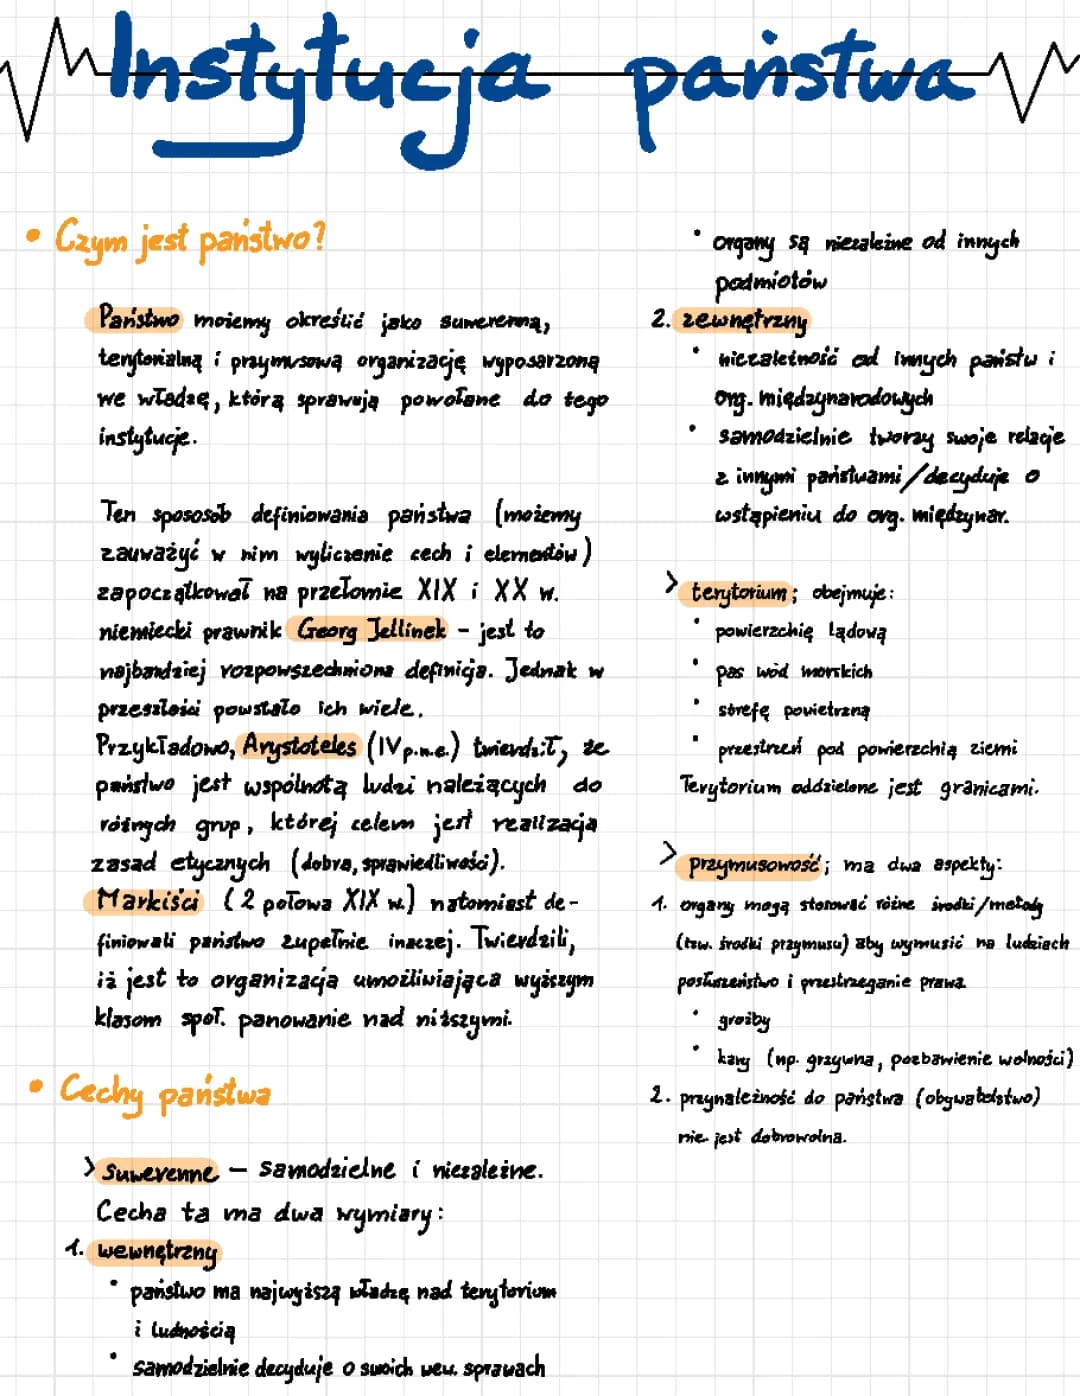 Instytucja państwa
• Czym jest państwo?
Państwo możemy określić jako suwerenną,
terytorialną i przymusową organizację wyposarzoną
we władzę, którą sprawują powołane do tego
instytucje.
Ten spososób definiowania państwa (możemy
zauważyć w nim wyliczenie cech i elementów)
zapoczątkował na przełomie XIX i XX w.
niemiecki prawnik Georg Jellinek - jest to
najbardziej rozpowszechniona definicja. Jednak w
przeszłości powstało ich wiele.
Przykładowo, Arystoteles (IV p.n.e.) twierdził, że
państwo jest wspólnotą ludzi należących do
różnych grup, której celem jest realizacja
zasad etycznych (dobra, sprawiedliwości).
Markiści (2 połowa XIX w.) natomiast de-
finiowali państwo zupełnie inaczej. Twierdzili,
iż jest to organizacja umożliwiająca wyższym
klasom społ. panowanie nad niższymi.
• Cechy państwa
> Suwerenne – samodzielne i niezależne.
Cecha ta ma dwa wymiary:
1. wewnętrzny
• państwo ma najwyższą władzę nad terytorium
i ludnością
• samodzielnie decyduje o swoich wew. sprawach
• organy są niezależne od innych
podmiotów
2. zewnętrzny
• niezależność od innych państw i
org. międzynarodowych
• samodzielnie tworzy swoje relacje
z innymi państwami/decyduje o
wstąpieniu do org. międzynar.
> terytorium; obejmuje:
• powierzchię lądową
• pas wód morskich
• strefę powietrzną
• przestrzeń pod powierzchią ziemi
Terytorium oddzielone jest granicami.
> przymusowość; ma dwa aspekty:
1. organy mogą stosować różne środki/metody
(tzw. środki przymusu) aby wymusić na ludziach
posłuszeństwo i przestrzeganie prawa.
• groźby
• kary (np. grzywna, pozbawienie wolności)
2. przynależność do państwa (obywatelstwo)
nie jest dobrowolna.